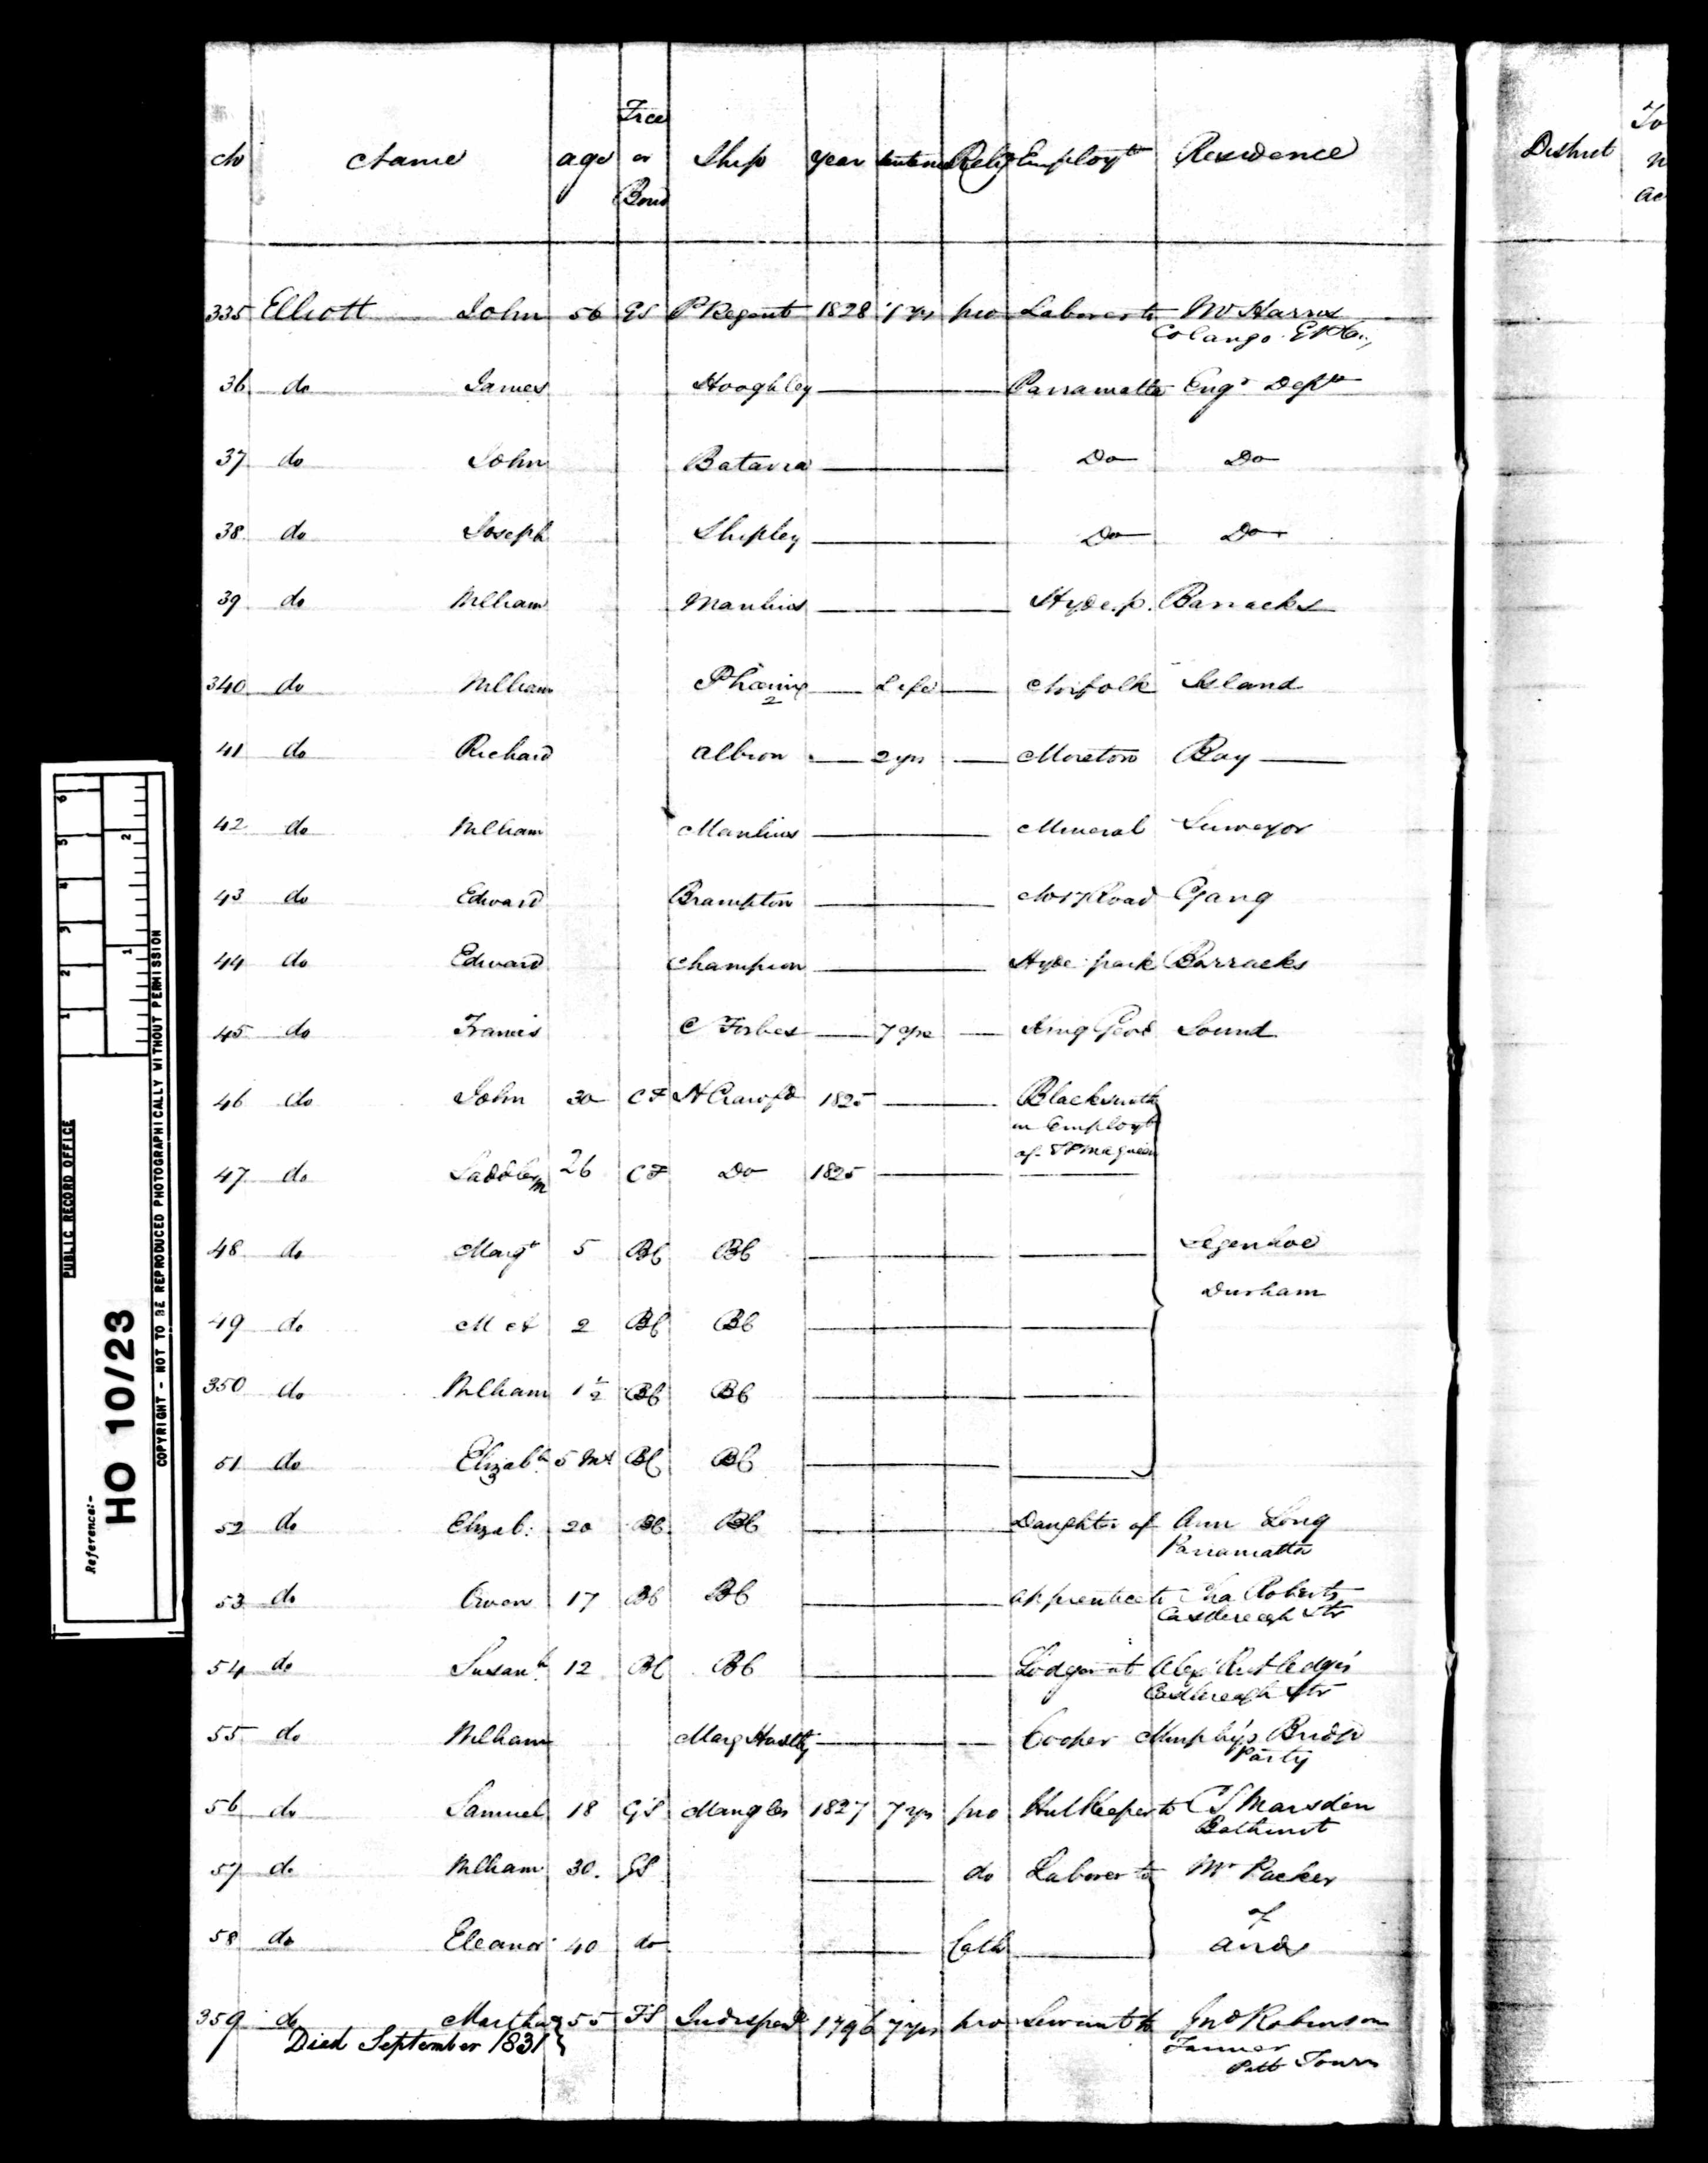 No Name age Free or Bond Ship year Sentence Relig Employt Residence District
335 Elliott John 56 GS P Regent 1828 7 yrs pro Laborer to Mr Harris
Colango
36 do James Hooghley Parramatta Engr Dept
37 do John Batavia Do Do
38 do Joseph Shipley Do Do
39 do William Manlius Hyde p. Barracks
340 do William Phœnix 2 Life Norfolk Island
41 do Richard Albion 2 yrs Moreton Bay
42 do William Manlius Mineral Surveyor
43 do Edward Brampton No 17 Road Gang
44 do Edward Champion Hyde park Barracks
45 do Francis C Forbes 7 yrs King Geos Sound
46 do John 30 CF H Crawfd 1825 Blacksmith
in Employt
of
47 do 26 CF Do 1825
48 do Margt 5 BC BC Segenhoe
Durham
49 do M A 2 BC BC
350 do William 1½ BC BC
51 do Elizabh 5 Ms BC BC
52 do Elizab: 20 BC BC Daughter of Ann Long
Parramatta
53 do Owen 17 BC BC apprentice to Roberts
Castlereagh Str
54 do Susanh 12 BC BC Lodger at Alexr Rutledge's
Castlereagh Str
55 do William Cooper Murphy's Bridge
Party
56 do Samuel 18 GS Mangles 1827 7 yrs pro Hutkeeper to C S Marsden
Bathurst
57 do William 30. GS do Laborer to Mr Packer
of
58 do Eleanor 40 do Cath
359 do Martha 55 FS Indispene 1796 7 yrs pro Servant to Jno Robinson
Died September 1831
Farmer
Pitt Town
PUBLIC RECORD OFFICE
Reference:-
HO 10/23
COPYRIGHT - NOT TO BE REPRODUCED PHOTOGRAPHICALLY WITHOUT PERMISSION